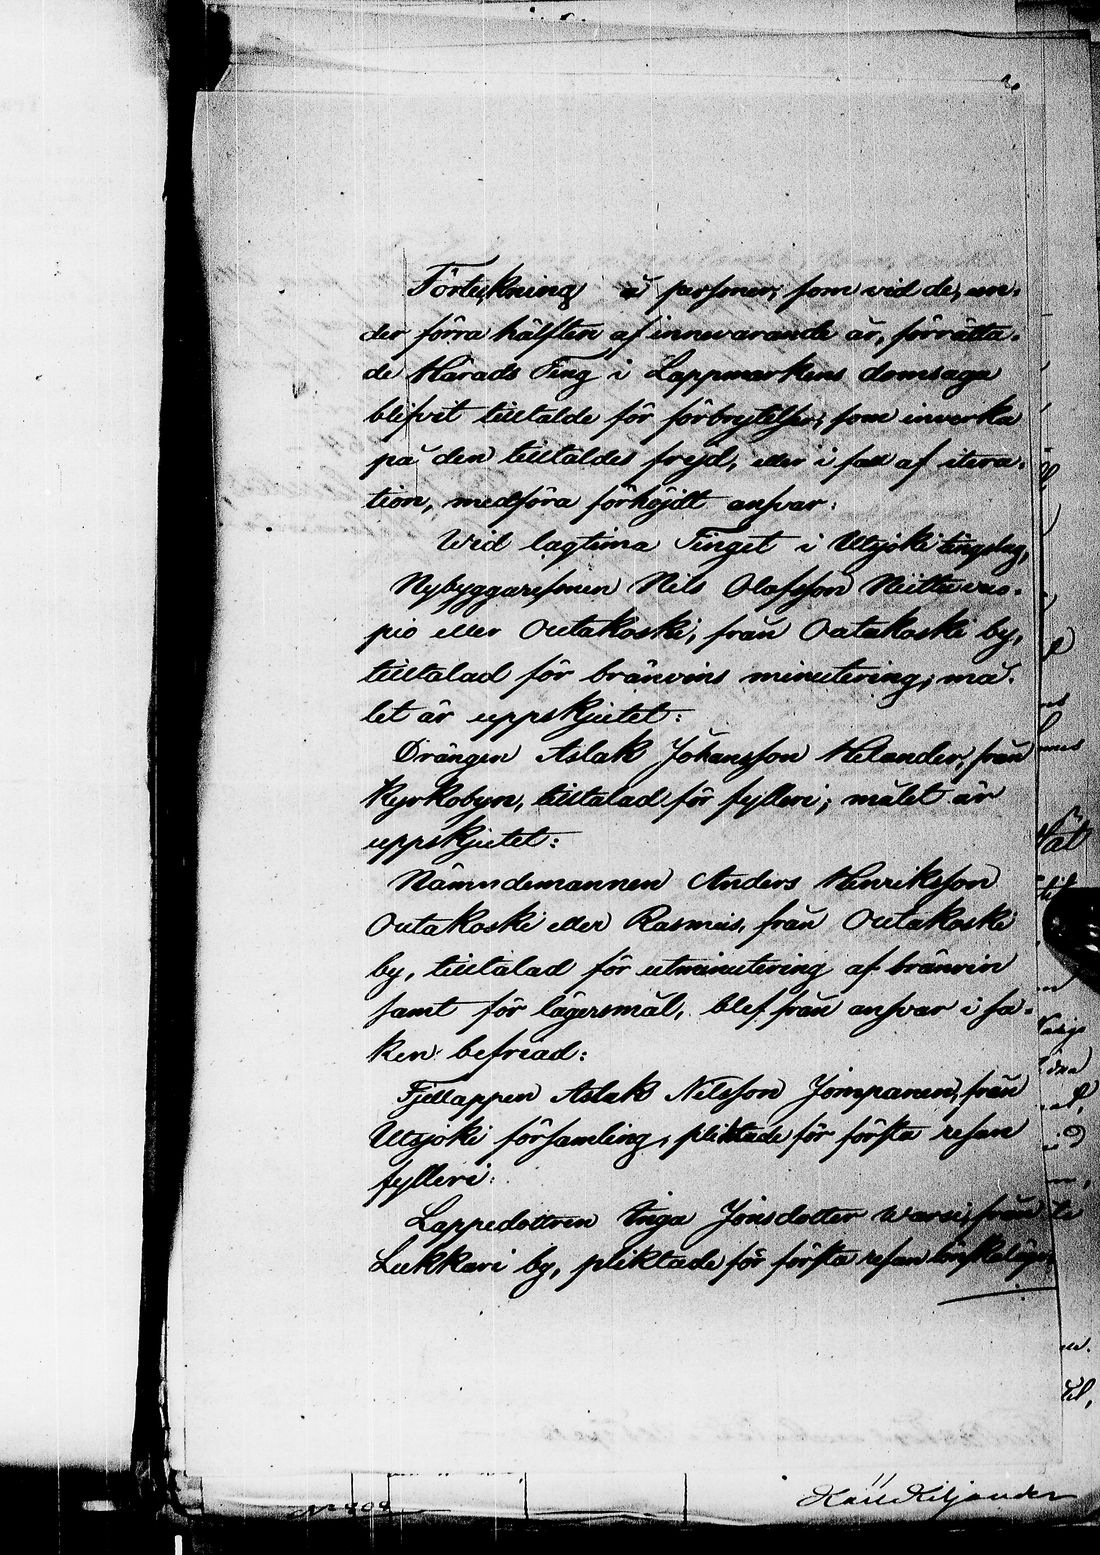 Förteckning å personer, som vid de, un-
der förra hälften af innevarande år, förrätta-
de Härads Ting i Lappmarkens domsaga
blifvit tilltalde för förbrytelser, som inverka
på den tilltaldes frejd, eller i fall af itera-
tion, medföra förhöjdt ansvar:
Wid lagtima Tinget i Utsjoki tingslag,
Nybyggaresmen Nils Olafsson Niittuvuo-
pio eller Outakoski, från Outakoski by,
tilltalad för bränvins minutering; må-
let är uppskjutet:
Drängen Aslak Johansson Helander, från
Kyrkobyn, tilltalad för fylleri; målet är
uppskjutet:
Nämndemannen Anders Henriksson
Outakoski eller Rasmus, från Outakoski
by, tilltalad för utminutering af bränvin
samt för lägersmål, blef från ansvar i sa-
ken befriad:
Fjellappen Aslak Nilsson Jomppanen, från
Utsjoki församling, pliktade för första resan
fylleri:
Lappedottren Inga Jonsdotter Warsi, från
Lukkari by, pliktade för första resan lönskaläge.